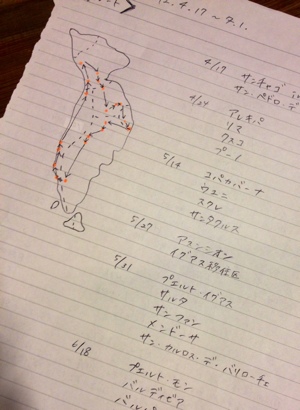 12.4.17 〜 7.1.
4/17
サンチャゴ
サン・ペドロ・デ
4/24
アレキパ
リマ
クスコ
プーノ
5/14
コパカバーナ
ウユニ
スクレ
サンタクルス
5/27
アスンシオン
イグアス移住区
5/31
プエルト・イグアス
サルタ
サンファン
メンドーサ
サン・カルロス・デ・バリローチェ
6/18
プエルト・モン
バルディビア